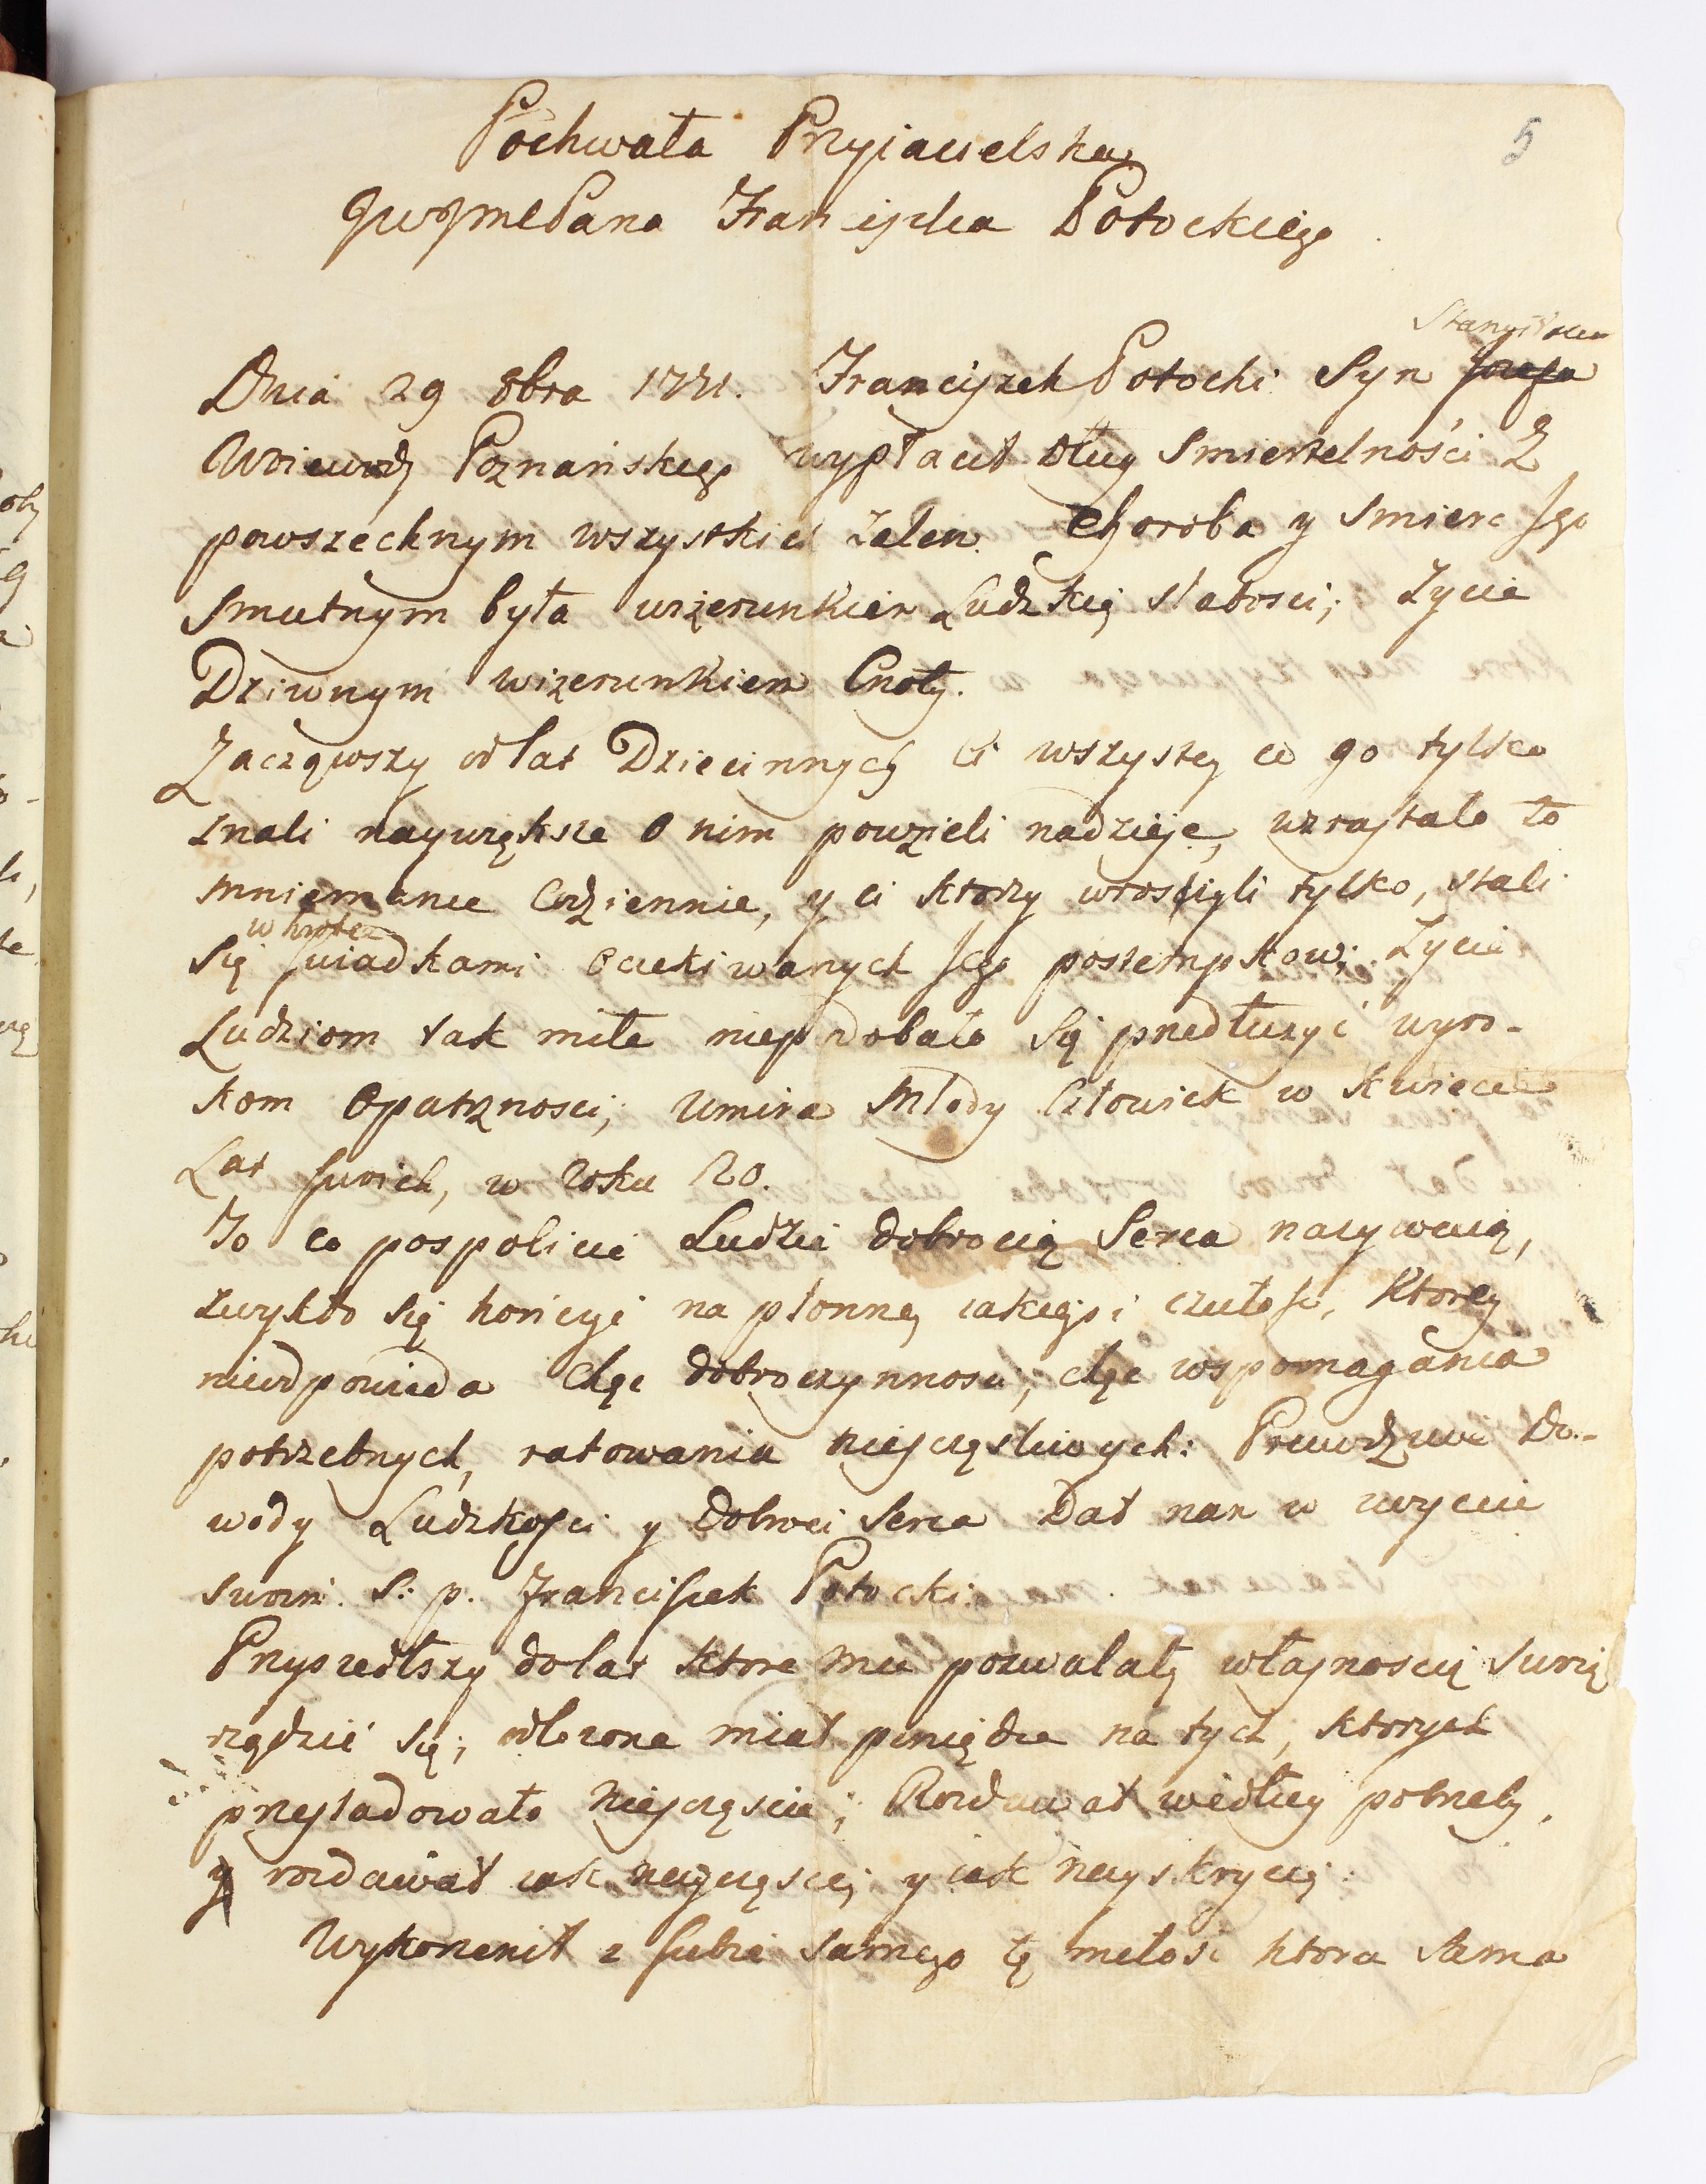 Pochwała Przyiacielska
JWJmćPana Franciszka Potockiego
5
Stanisława
Dnia 29 8bra 1771. Franciszek Potocki Syn Jozefa
Woiewody Poznańskiego wypłacił dług Smiertelności Z
powszechnym wszystkich żalem. Choroba y Smierć Jego
Smutnym była wizerunkiem Ludzkiej słabosci; Życie
Dziwnym wizerunkiem Cnoty.
Zacząwszy od lat Dziecinnych Ci wszyscy co go tylko
znali naywiększe o nim powzieli nadzieje, wzrastało to
mniemanie Codziennie, y ci ktorzy wrożyli tylko, stali
w krotce
się swiadkami oczekiwanych Jego postempkow; Życie
Ludziom tak miłe niepodobało się przedłużyć wyro-
kom Opatrznosci; umiera Młody Człowiek w kwiecie
Lat swoich, w Roku 20.
To co pospolicie Ludzie dobrocią Serca nazywaią,
zwykło się kończyć na płonney iakieyści czułości, ktorey
nieodpowieda chęć dobroczynnosci; chęć wspomagania
potrzebnych, ratowania nieszczęsliwych: Prawdziwe Do-
wody Ludzkości y Dobroci Serca Dał nam w życiu
swoim S: p. Franciszek Potocki.
Przyszedłszy do lat ktore mu pozwalały własnoscią swoią
rządzić się; odłożone miał pieniądze na tych, ktorych
prześladowało nieszczęscie; Rozdawał według potrzeby,
y rozdawał iak nayczęsciey y iak nayskryciey.
Wykorzenił z siebie samego tę miłość ktora sama